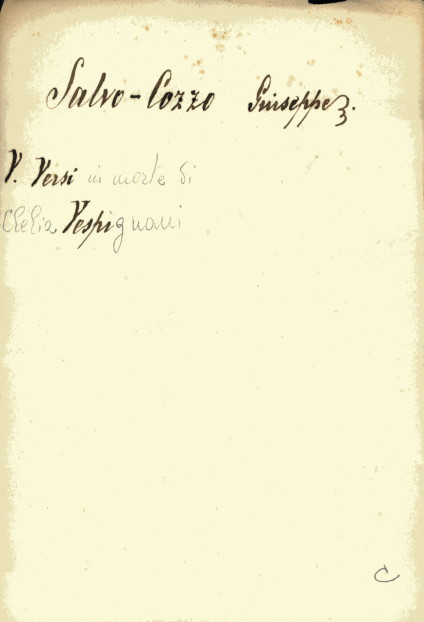 Salvo-Cozzo Giuseppe.
V. Versi in morte di
Clelia Vespignani
C